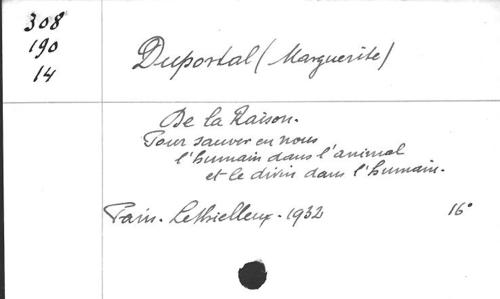 308
190
14
Duportal (Marguerite)
De la Raison.
Pour sauver en nous
l'humain dans l'animal
et le divin dans l'humain.
Paris. Lethielleux. 1932 16°